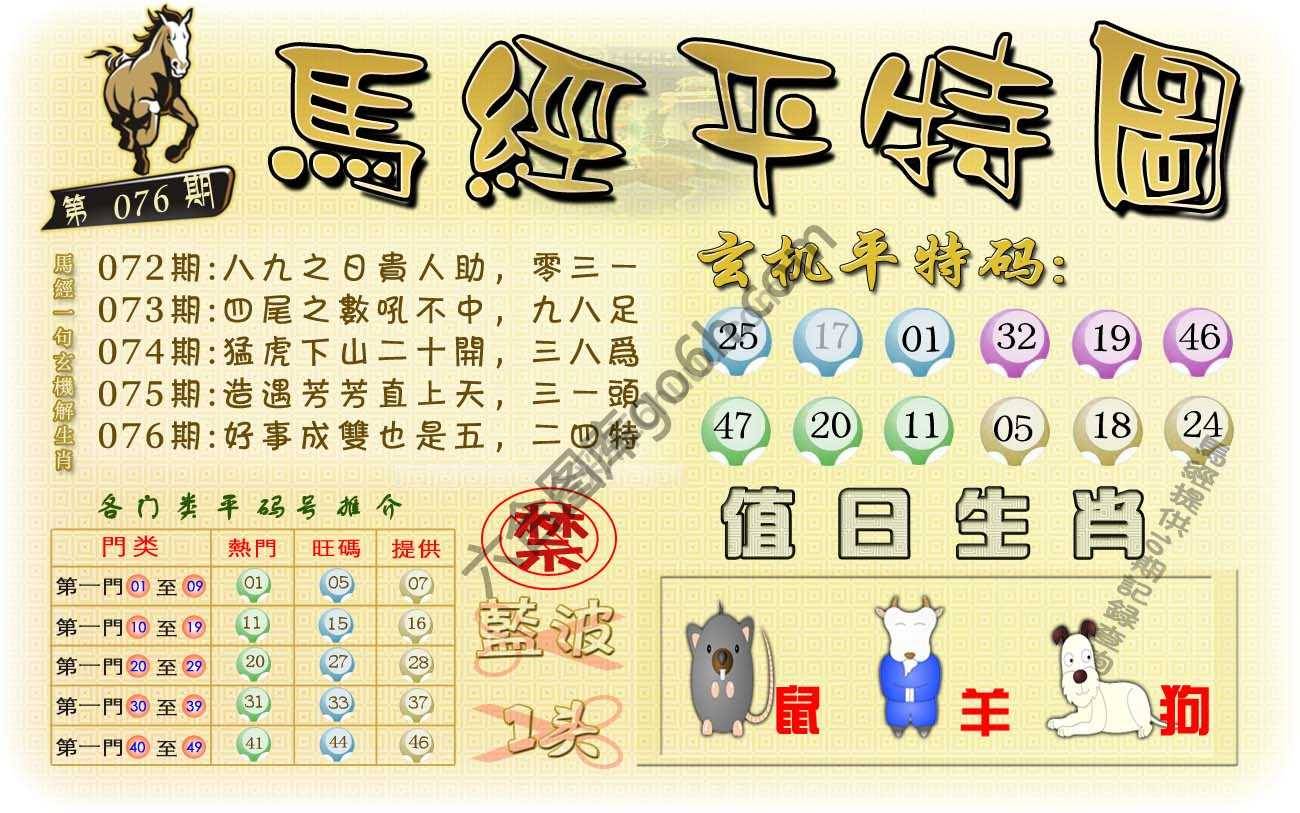 馬經平特圖
第 076 期
馬經一句玄機解生肖
072期:八九之日貴人助，零三一
073期:四尾之數吼不中，九八足
074期:猛虎下山二十開，三八爲
075期:造遇芳芳直上天，三一頭
076期:好事成雙也是五，二四特
玄机平特码:
25 17 01 32 19 46
47 20 11 05 18 24
各门类平码号推介
門类 熱門 旺碼 提供
第一門 01 至 09 01 05 07
第一門 10 至 19 11 15 16
第一門 20 至 29 20 27 28
第一門 30 至 39 31 33 37
第一門 40 至 49 41 44 46
禁
藍波
1头
值日生肖
鼠 羊 狗
六合图库go6h.com